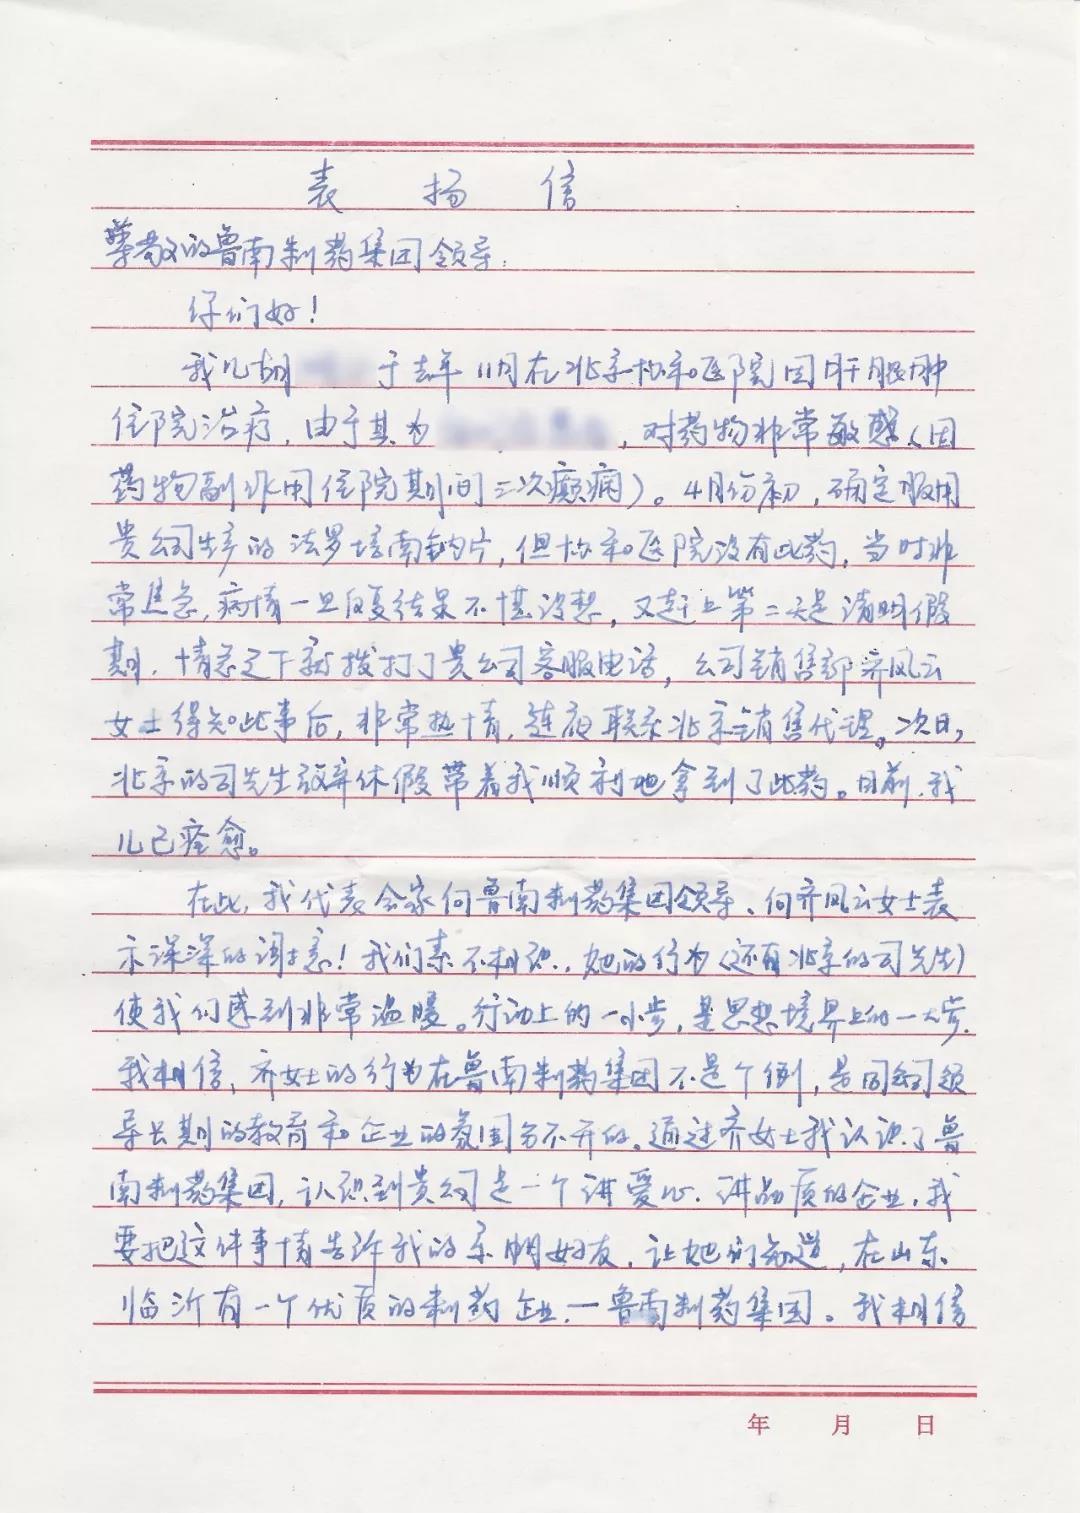 表扬信
尊敬的鲁南制药集团领导:
你们好!
我儿胡 于去年11月在北京协和医院因肝脓肿
住院治疗,由于其为 ,对药物非常敏感(因
药物副作用住院期间二次癫痫)。4月份初,确定服用
贵公司生产的法罗培南钠片,但协和医院没有此药,当时非
常焦急,病情一旦反复结果不堪设想,又赶上第二天是清明假
期,情急之下就拨打了贵公司客服电话,公司销售部齐风云
女士得知此事后,非常热情,连夜联系北京销售代理。次日,
北京的司先生放弃休假带着我顺利地拿到了此药。目前,我
儿已痊愈。
在此,我代表全家向鲁南制药集团领导、向齐风云女士表
示深深的谢意!我们素不相识,她的行为(还有北京的司先生)
使我们感到非常温暖。行动上的一小步,是思想境界上的一大步.
我相信,齐女士的行为在鲁南制药集团不是个例,是同公司领
导长期的教育和企业的氛围分不开的。通过齐女士我认识了鲁
南制药集团,认识到贵公司是一个讲爱心、讲品质的企业,我
要把这件事情告诉我的亲朋好友,让她们知道,在山东
临沂有一个优质的制药企业—鲁南制药集团。我相信
年 月 日